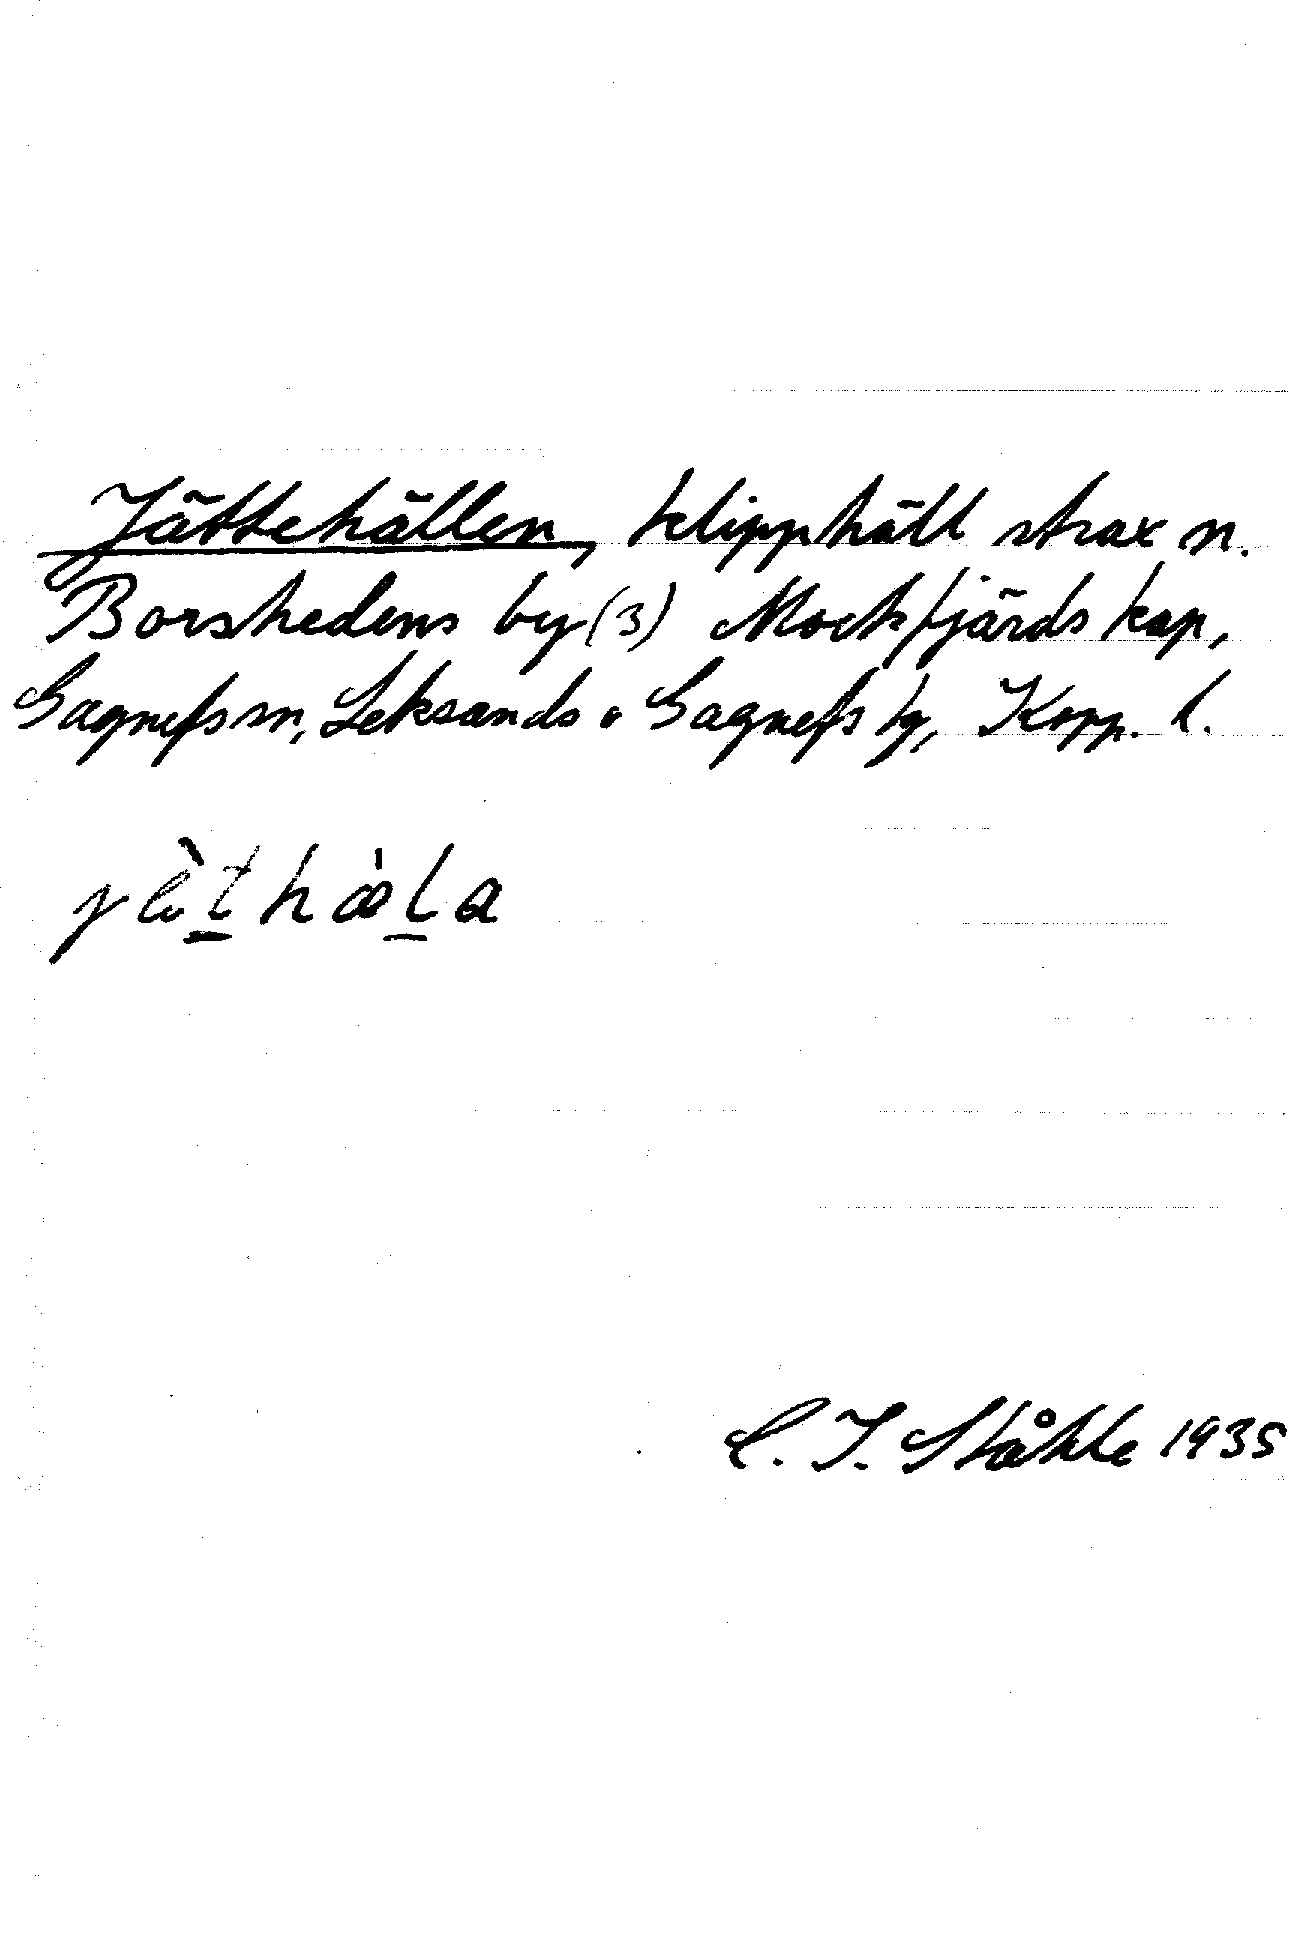 Jättehällen, klipphäll strax n.
Borshedens by (3) Mockfjärds kap,
Gagnefs sn, Leksands o Gagnefs tg, Kopp. l.
hæla
C. I. Ståhle 1935